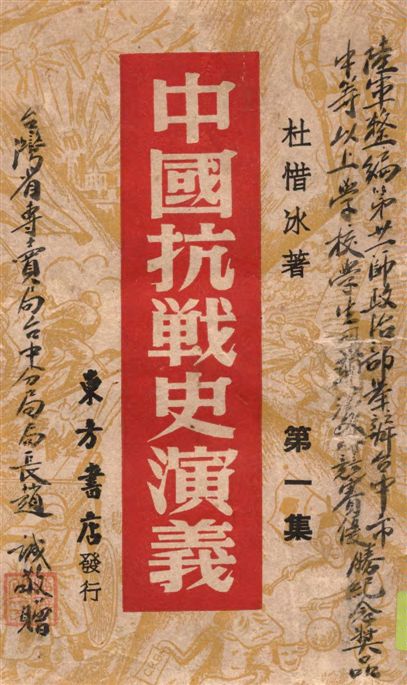 陸軍整編第廿一師政治部舉辦台中市
中等以上學校學生賽優勝紀念獎品
杜惜冰著
第一集
中國抗戰史演義
東方書店發行
台灣省專賣局台中分局局長趙 誠敬贈